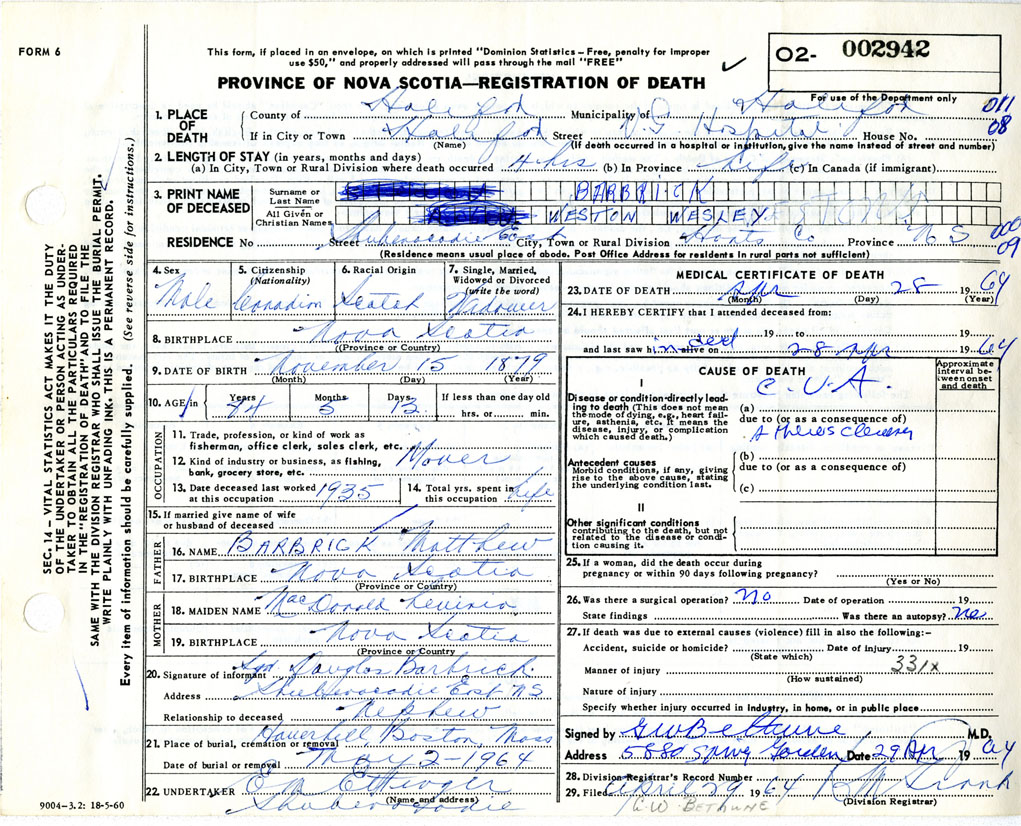 FORM 6
This form, if placed in an envelope, on which is printed "Dominion Statistics – Free, penalty for improper
use $50," and properly addressed will pass through the mail "FREE"
02- 002942
PROVINCE OF NOVA SCOTIA—REGISTRATION OF DEATH
For use of the Department only
011
08
1. PLACE OF DEATH
County of Halifax Municipality of Halifax
If in City or Town Halifax Street V.G. Hospital House No.
(Name) (If death occurred in a hospital or institution, give the name instead of street and number)
2. LENGTH OF STAY (in years, months and days)
(a) In City, Town or Rural Division where death occurred 4 hrs (b) In Province Life (c) In Canada (if immigrant)
3. PRINT NAME OF DECEASED
Surname or Last Name BARBRICK
All Given or Christian Names WESTON WESLEY
RESIDENCE No Street Shubenacadie East City, Town or Rural Division Hants Co Province N S
09
(Residence means usual place of abode. Post Office Address for residents in rural parts not sufficient)
4. Sex Male
5. Citizenship (Nationality) Canadian
6. Racial Origin Scotch
7. Single, Married, Widowed or Divorced (write the word) Widower
8. BIRTHPLACE Nova Scotia
(Province or Country)
9. DATE OF BIRTH November 15 1879
(Month) (Day) (Year)
10. AGE in Years 84 Months 5 Days 13 If less than one day old
hrs. or min.
OCCUPATION
11. Trade, profession or kind of work as
fisherman, office clerk, sales clerk, etc.
12. Kind of industry or business, as fishing,
bank, grocery store, etc.
13. Date deceased last worked at this occupation 1935
14. Total yrs. spent in this occupation Life
15. If married give name of wife
or husband of deceased
FATHER
16. NAME BARBRICK Matthew
17. BIRTHPLACE Nova Scotia
(Province or Country)
MOTHER
18. MAIDEN NAME MacDonald Levinia
19. BIRTHPLACE Nova Scotia
(Province or Country
20. Signature of informant Sgd. Douglas Barbrick
Address Shubenacadie East NS
Relationship to deceased Nephew
21. Place of burial, cremation or removal Haverhill Boston, Mass
Date of burial or removal May 2-1964
22. UNDERTAKER E M Ettinger
(Name and address)
Shubenacadie
9004–3.2: 18-5-60
MEDICAL CERTIFICATE OF DEATH
23. DATE OF DEATH Apr 28 1964
(Month) (Day) (Year)
24. I HEREBY CERTIFY that I attended deceased from:
19 to 19
and last saw him alive on dead 28 Apr 1964
CAUSE OF DEATH
Approximate interval between onset and death
I
Disease or condition directly leading to death (This does not mean the mode of dying, e.g., heart failure, asthenia, etc. It means the disease, injury, or complication which caused death.)
(a) C.V.A.
due to (or as a consequence of)
Antecedent causes
Morbid conditions, if any, giving rise to the above cause, stating the underlying condition last.
(b)
due to (or as a consequence of)
(c)
II
Other significant conditions
contributing to the death, but not related to the disease or condition causing it.
25. If a woman, did the death occur during
pregnancy or within 90 days following pregnancy?
(Yes or No)
26. Was there a surgical operation? No Date of operation 19
State findings Was there an autopsy? No
27. If death was due to external causes (violence) fill in also the following:–
Accident, suicide or homicide? Date of injury 19
(State which)
Manner of injury 331x
(How sustained)
Nature of injury
Specify whether injury occurred in Industry, in home, or in public place
Signed by GW Bethune M.D.
Address 5880 Spring Garden Date 29 Apr 1964
28. Division Registrar's Record Number
29. Filed April 29 1964
(Division Registrar)
G.W. BETHUNE
SEC. 14 – VITAL STATISTICS ACT MAKES IT THE DUTY
OF THE UNDERTAKER OR PERSON ACTING AS UNDER-
TAKER TO OBTAIN ALL THE PARTICULARS REQUIRED
IN THE "REGISTRATION OF DEATH" AND TO FILE THE
SAME WITH THE DIVISION REGISTRAR WHO SHALL ISSUE THE BURIAL PERMIT.
WRITE PLAINLY WITH UNFADING INK. THIS IS A PERMANENT RECORD.
Every item of information should be carefully supplied. (See reverse side for instructions.)